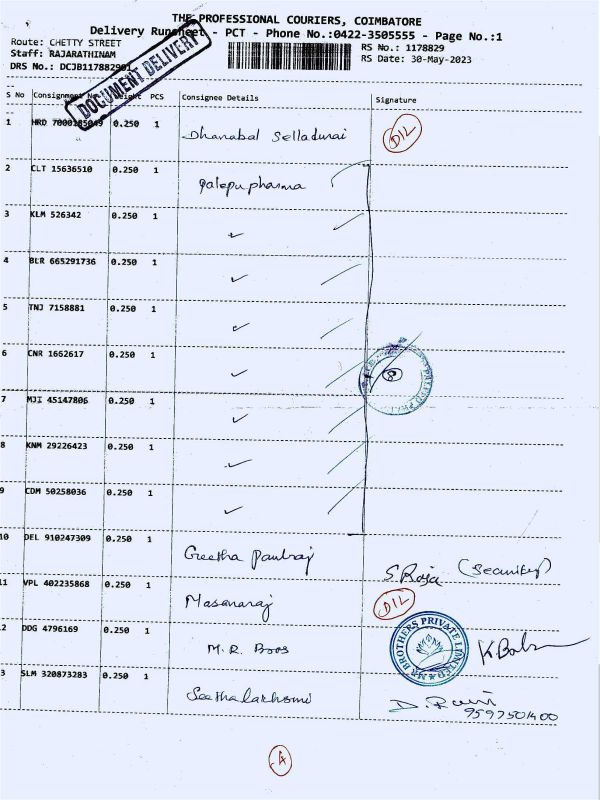 THE PROFESSIONAL COURIERS, COIMBATORE
Delivery Runsheet - PCT - Phone No.:0422-3505555 - Page No.:1
Route: CHETTY STREET
RS No.: 1178829
Staff: RAJARATHINAM
RS Date: 30-May-2023
DRS No.: DCJB117882901
DOCUMENT DELIVERY
S No Consignment No Weight PCS Consignee Details Signature
1 HRD 0.250 1 Dhanabal Selladurai DIL
2 CLT 15636510 0.250 1 galepupharma
3 KLM 526342 0.250 1 ✓
4 BLR 665291736 0.250 1 ✓
5 TNJ 7158881 0.250 1 ✓
6 CNR 1662617 0.250 1 ✓ 8
7 MJI 45147806 0.250 1 ✓
8 KNM 29226423 0.250 1 ✓
9 CDM 50258036 0.250 1 ✓
10 DEL 910247309 0.250 1 Geetha Paulraj S. Roja (Security)
11 VPL 402235868 0.250 1 Masanaraj DIL
2 DDG 4796169 0.250 1 M.R. Boos BROTHERS PRIVATE LIMITED
3 SLM 320873283 0.250 1 Seethalakshmi D.
9597501400
A